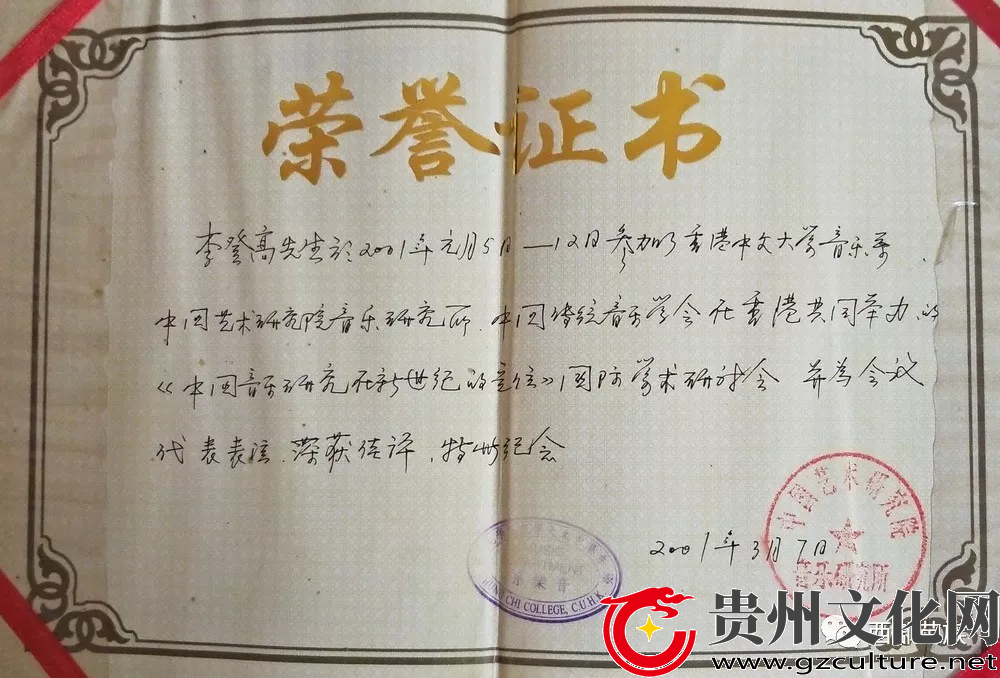 荣誉证书
李登高先生於2001年元月5日—12日参加了香港中文大学音乐系、
中国艺术研究院音乐研究所、中国传统音乐学会在香港共同举办的
《中国音乐研究在新世纪的定位》国际学术研讨会 并为会议
代表表演、荣获佳评,特此纪念
2001年3月7日
中国艺术研究院
音乐研究所
CHI COLLEGE, C.U.H.K.
贵州文化网
www.gzculture.net